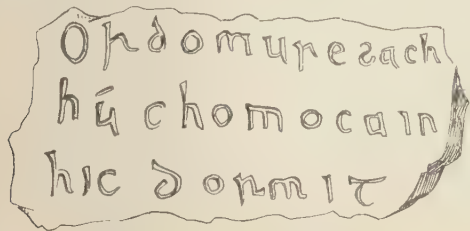 Ordomuredach
hú chomocain
hic dormit